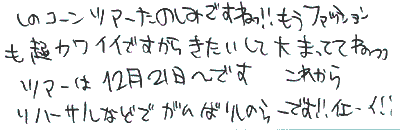 このコーンツアーたのしみですねっ!!もうファッション
も超カワイイですがらきたいして大まっててねっ
ツアーは12月21日へです これから
リハーサルなどでがんばりのらーです!!イエーイ!!